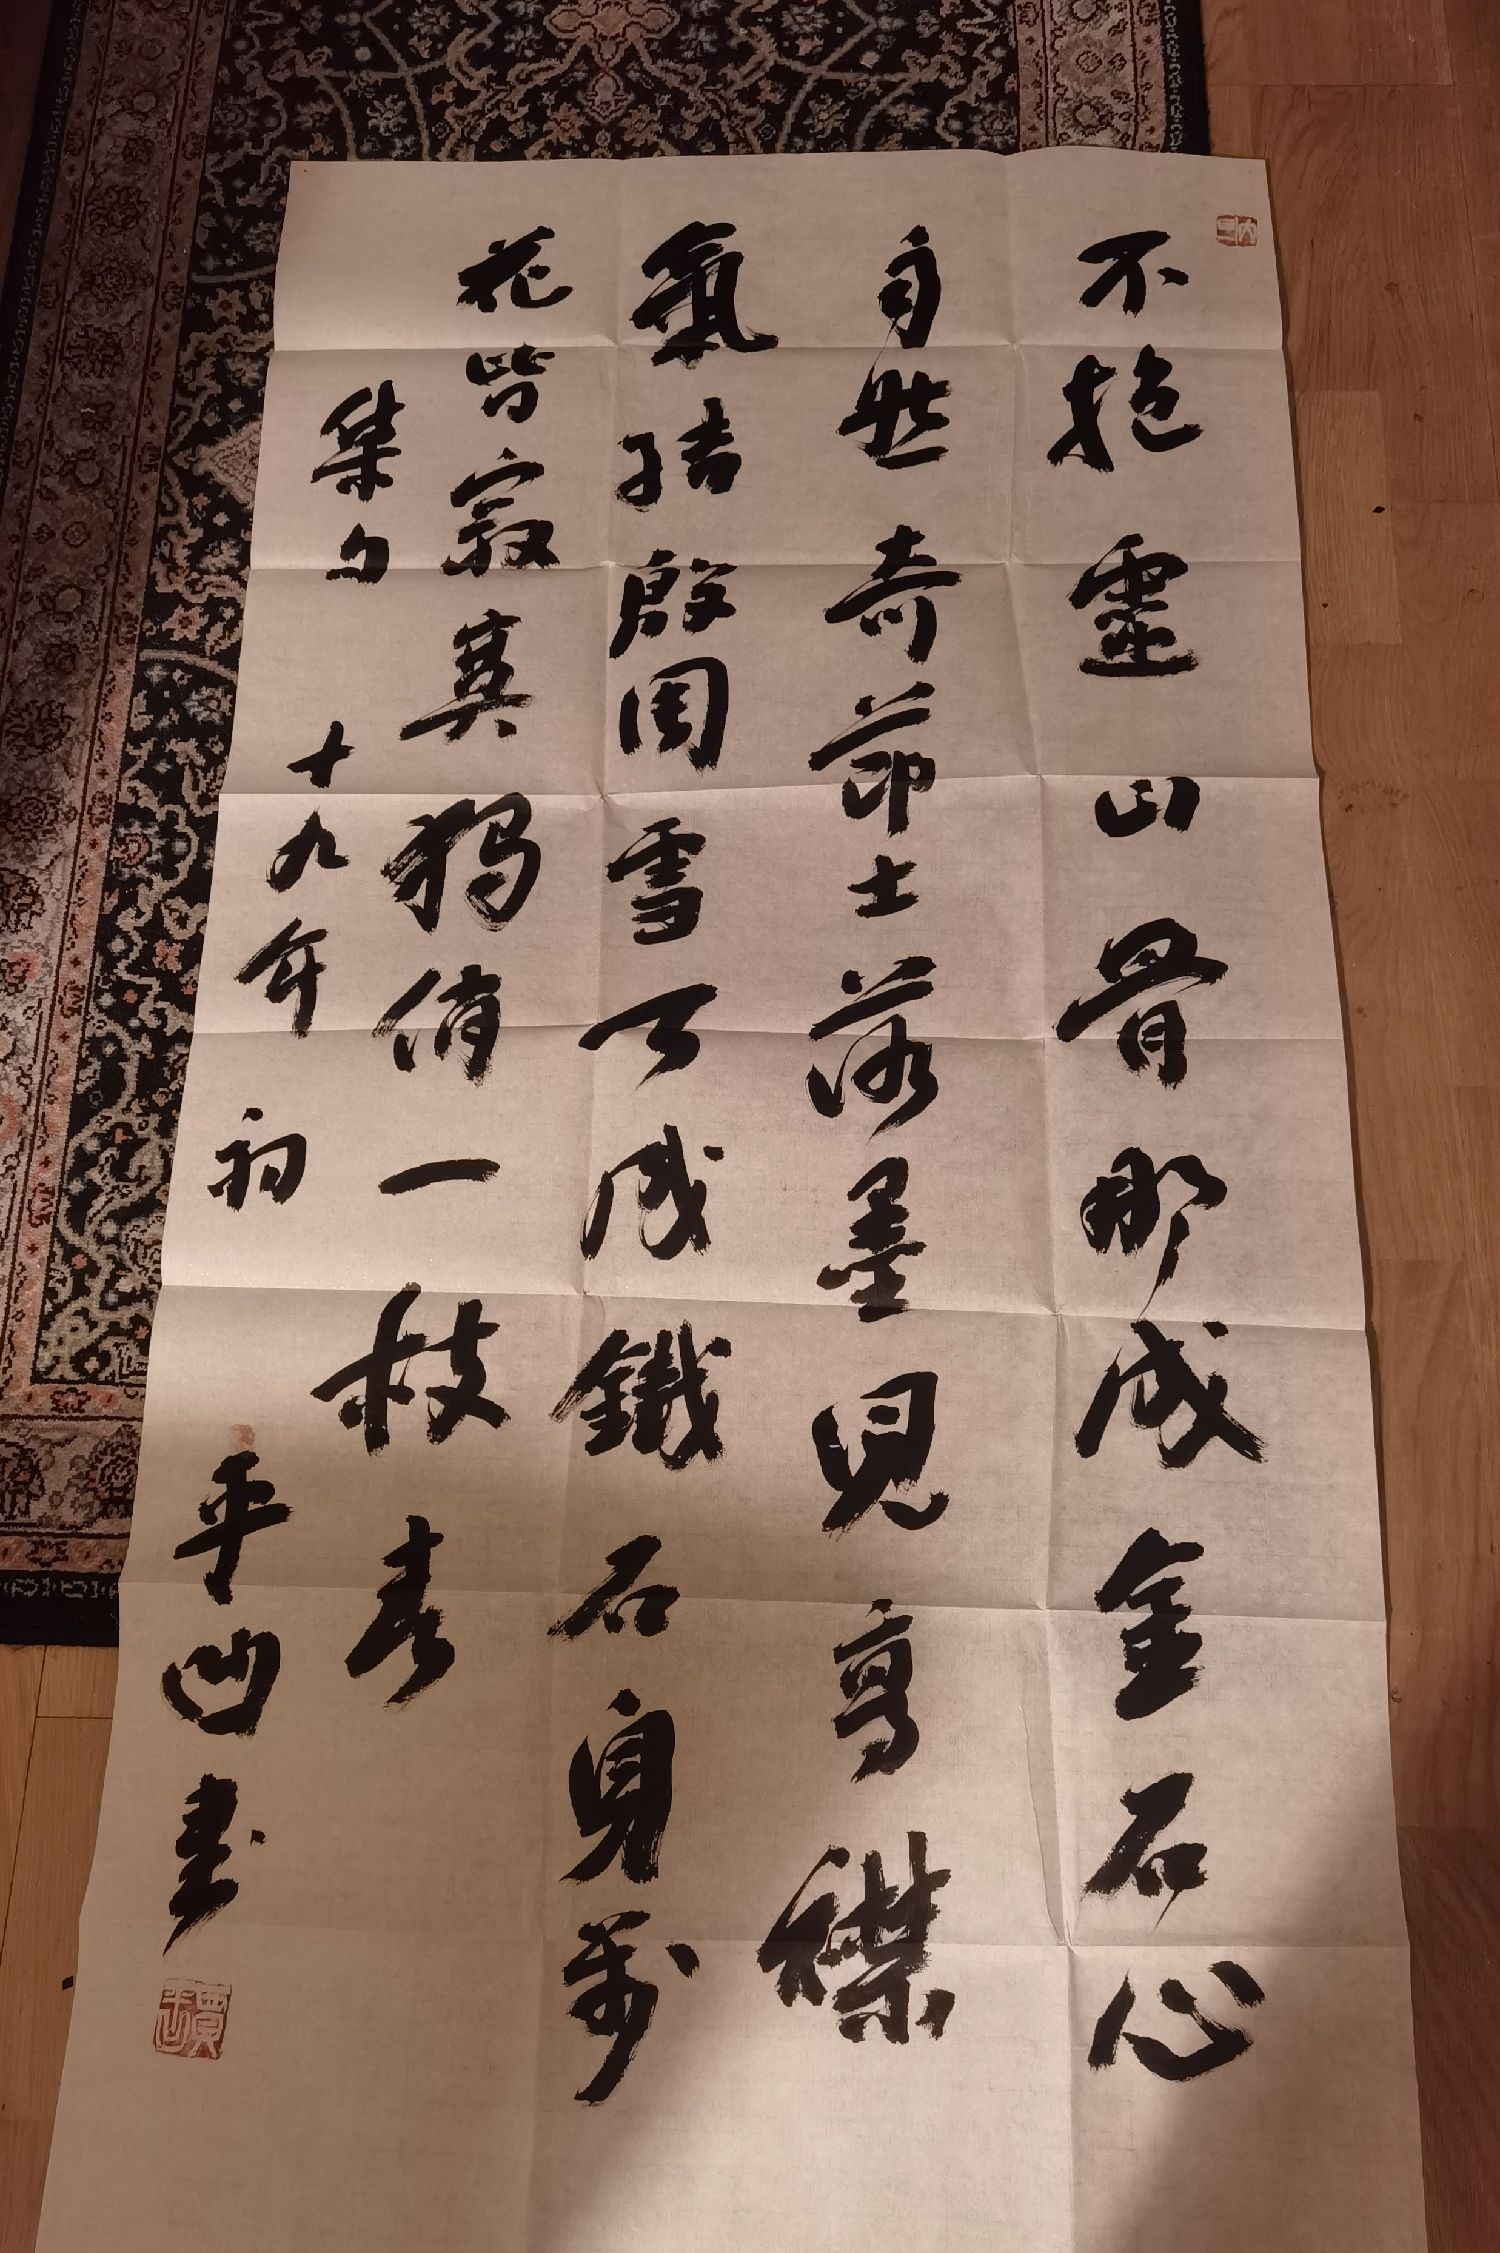 不抱靈山骨那成金石心
自然奇節士落墨見高襟
氣結殷周雪天成鐵石身萬
花皆寂寞獨俏一枝春
集句 十九年初
平凹書